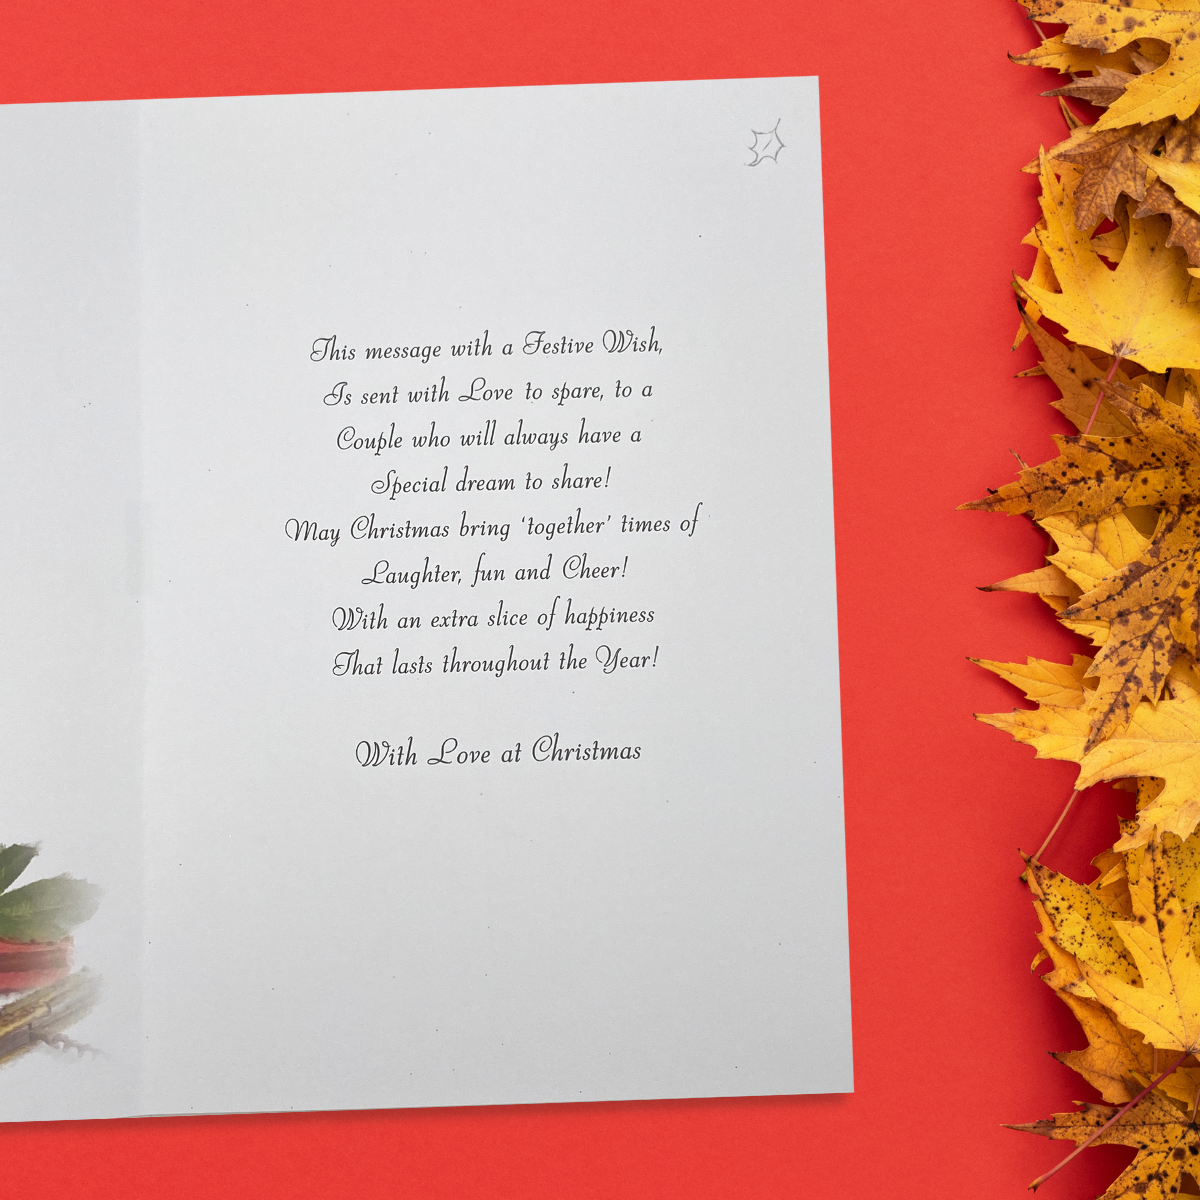 This message with a Festive Wish,
Is sent with Love to spare, to a
Couple who will always have a
Special dream to share!
May Christmas bring ‘together’ times of
Laughter, fun and Cheer!
With an extra slice of happiness
That lasts throughout the Year!
With Love at Christmas